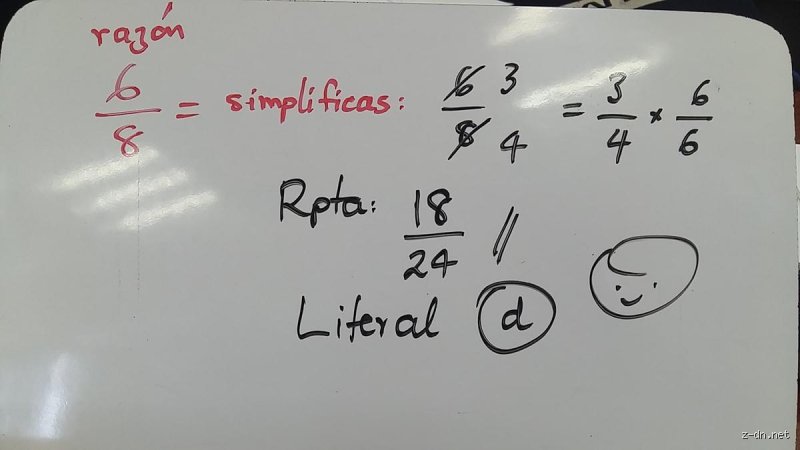 razón
6/8 = simplificas: 6/8 3/4 = 3/4 × 6/6
Rpta: 18/24 //
Literal d
z-dn.net